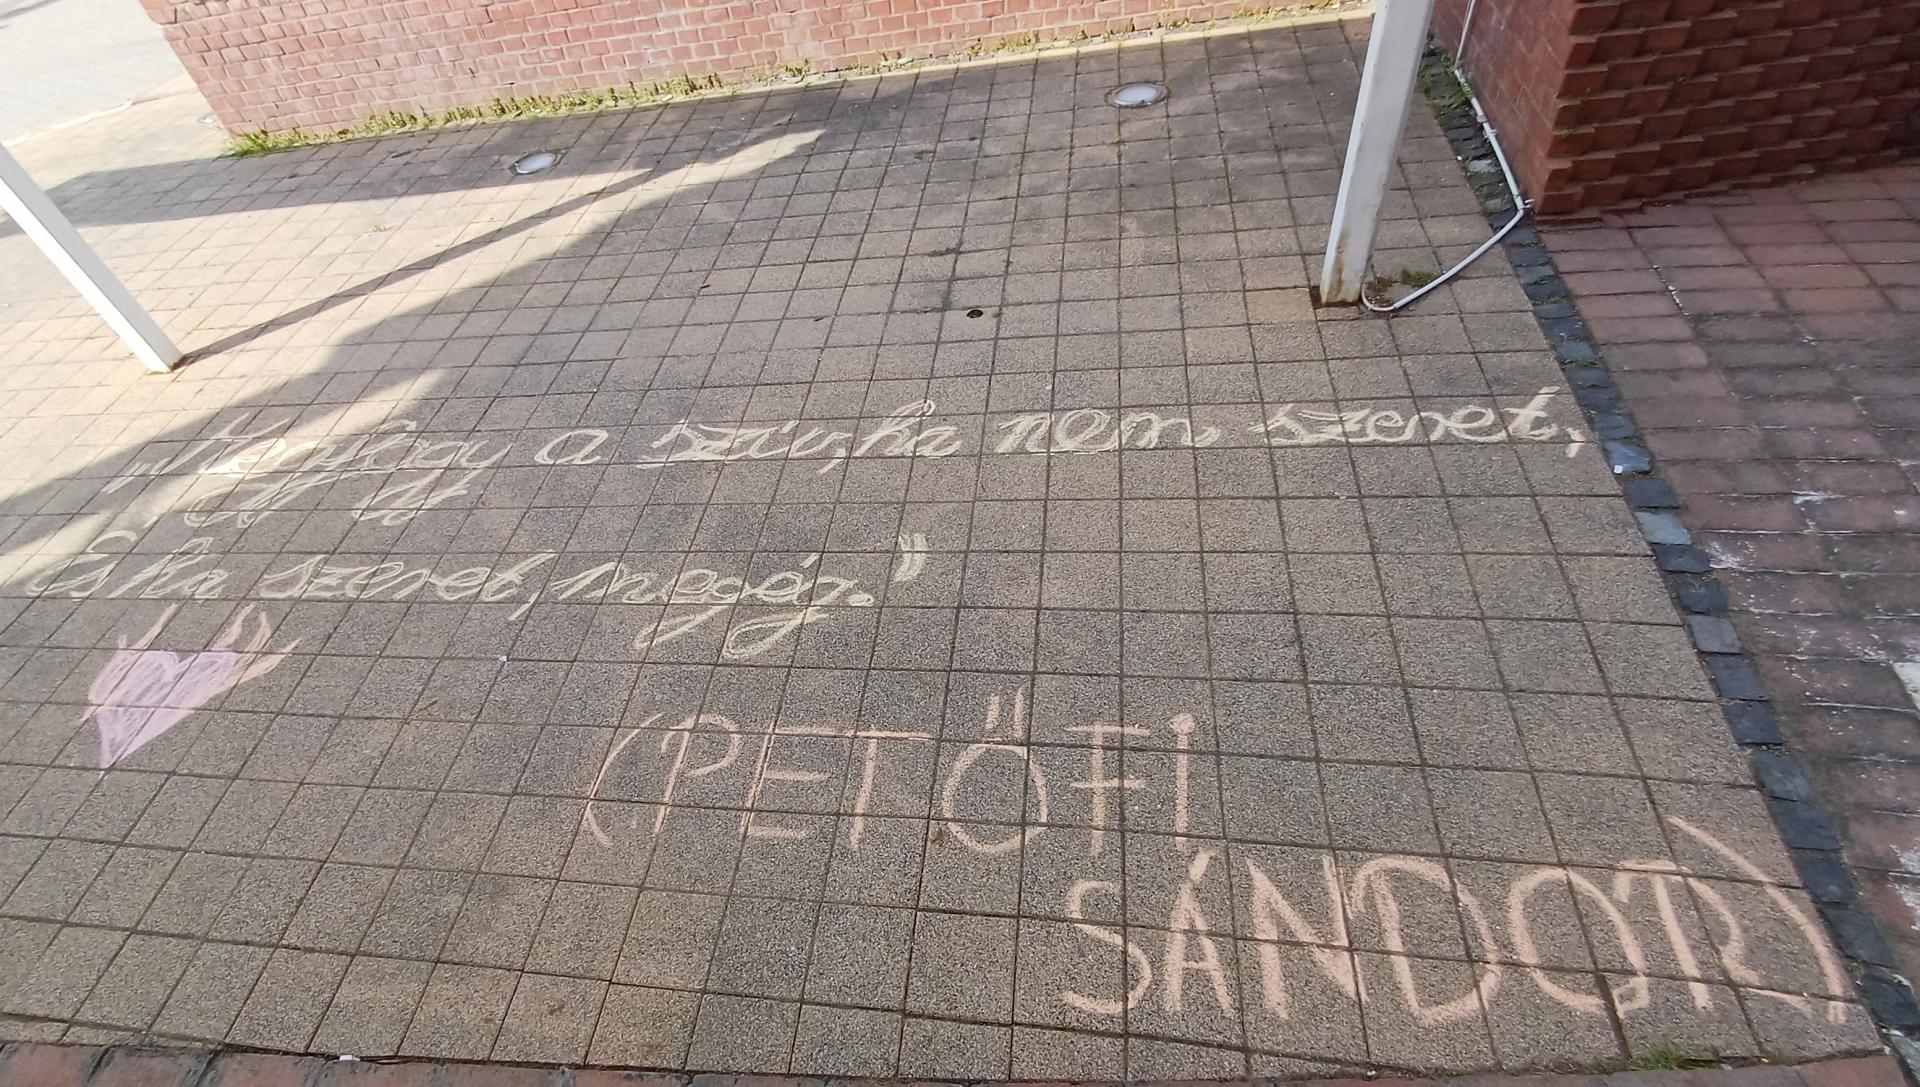 „Megfagy a szív, ha nem szeret,
És ha szeret, megég.”
(PETŐFI
SÁNDOR)